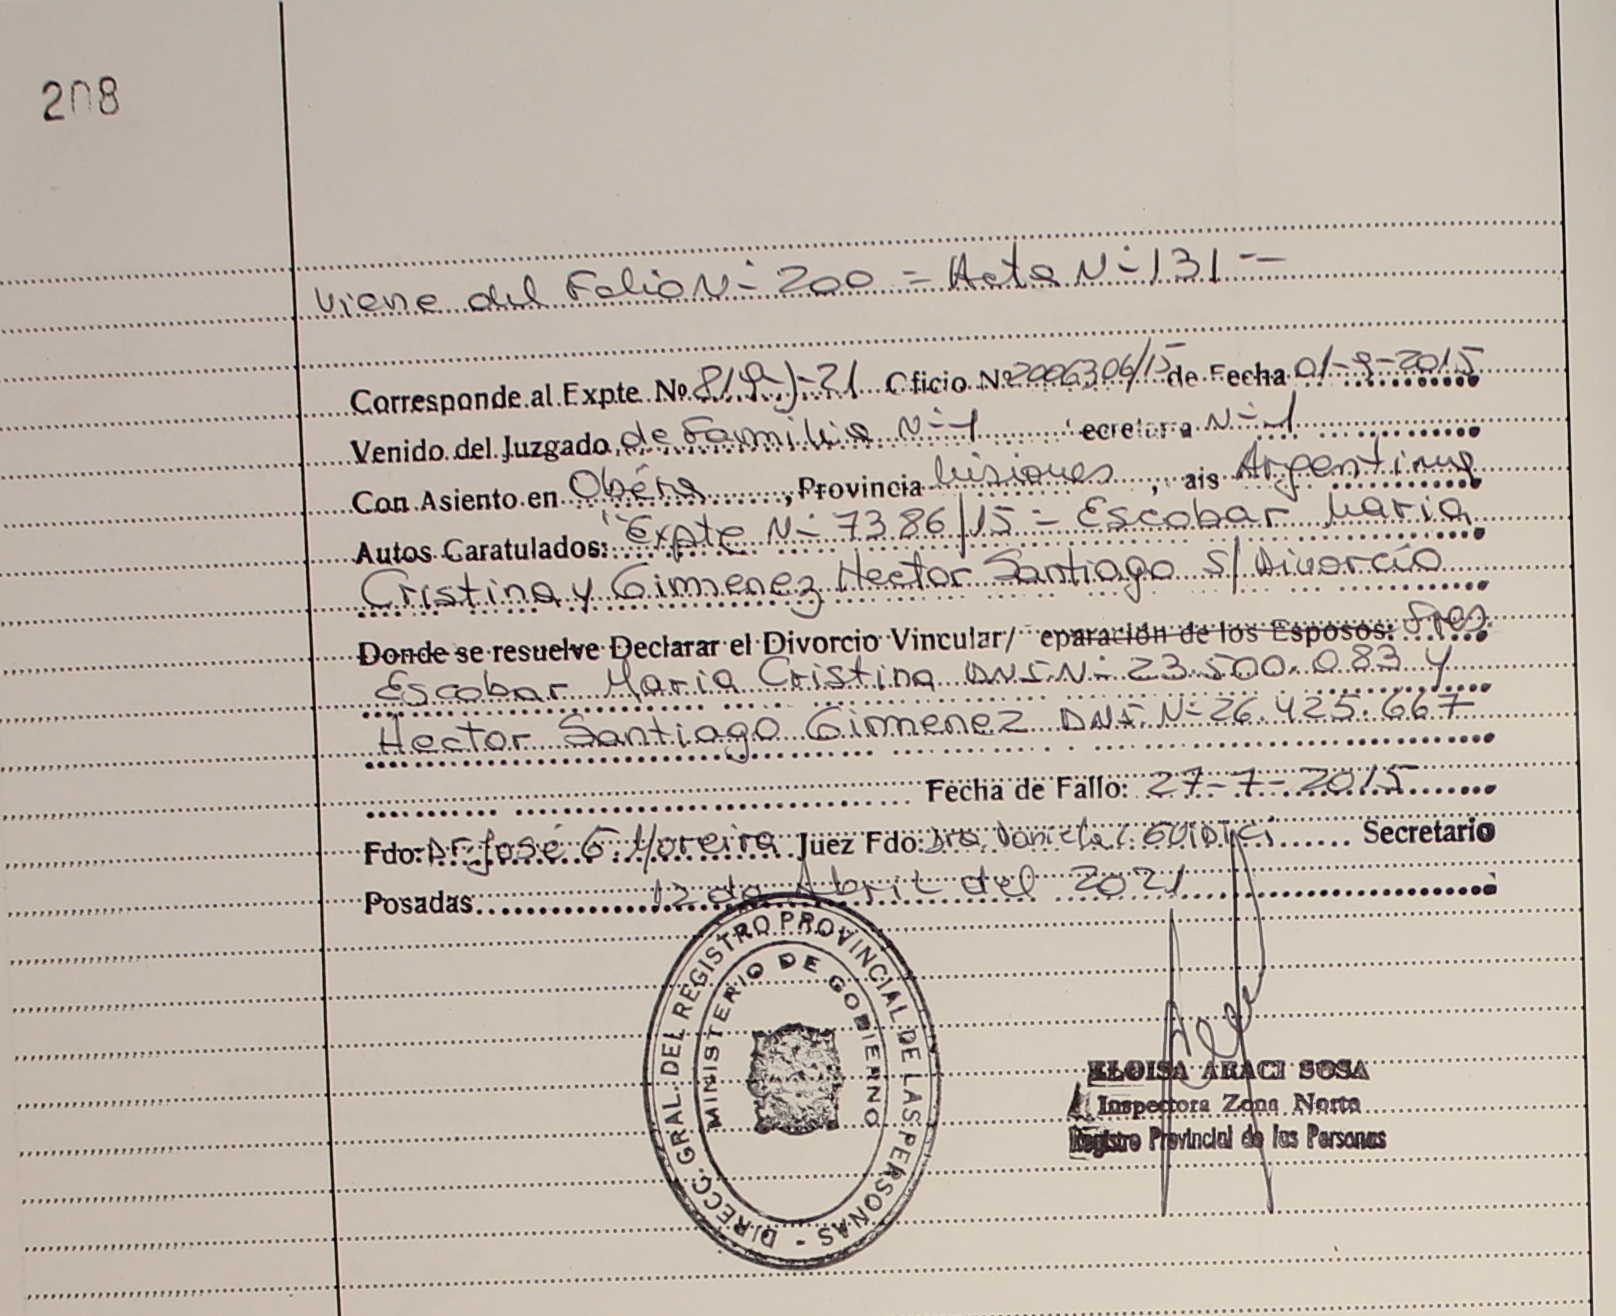 208
Viene del Folio N- 200 = Acta N- 131 --
Corresponde al Expte. Nº 819-J-21 Oficio Nº 2006306/15 de Fecha 01-9-2015
Venido del Juzgado de Familia N-1 ecretar a N-1
Con Asiento en Oberá, Provincia Misiones, ais Argentina
Autos Caratulados: "Expte N- 7386/15 = Escobar Maria
Cristina y Gimenez Hector Santiago S/ Divorcio
Donde se resuelve Declarar el Divorcio Vincular/ eparación de los Esposos: Sres
Escobar Maria Cristina DNI. N- 23.500.083 y
Hector Santiago Gimenez DNI. N- 26.425.667
Fecha de Fallo: 27-7-2015
Fdo: Dr. José G. Moreira Juez Fdo: Dra. Daniela Secretario
Posadas 12 de Abril del 2021
DIRECC. GRAL. DEL REGISTRO PROVINCIAL DE LAS PERSONAS -
MINISTERIO DE GOBIERNO
ELOISA ARACI SOSA
Inspectora Zona Norte
Registro Provincial de las Personas